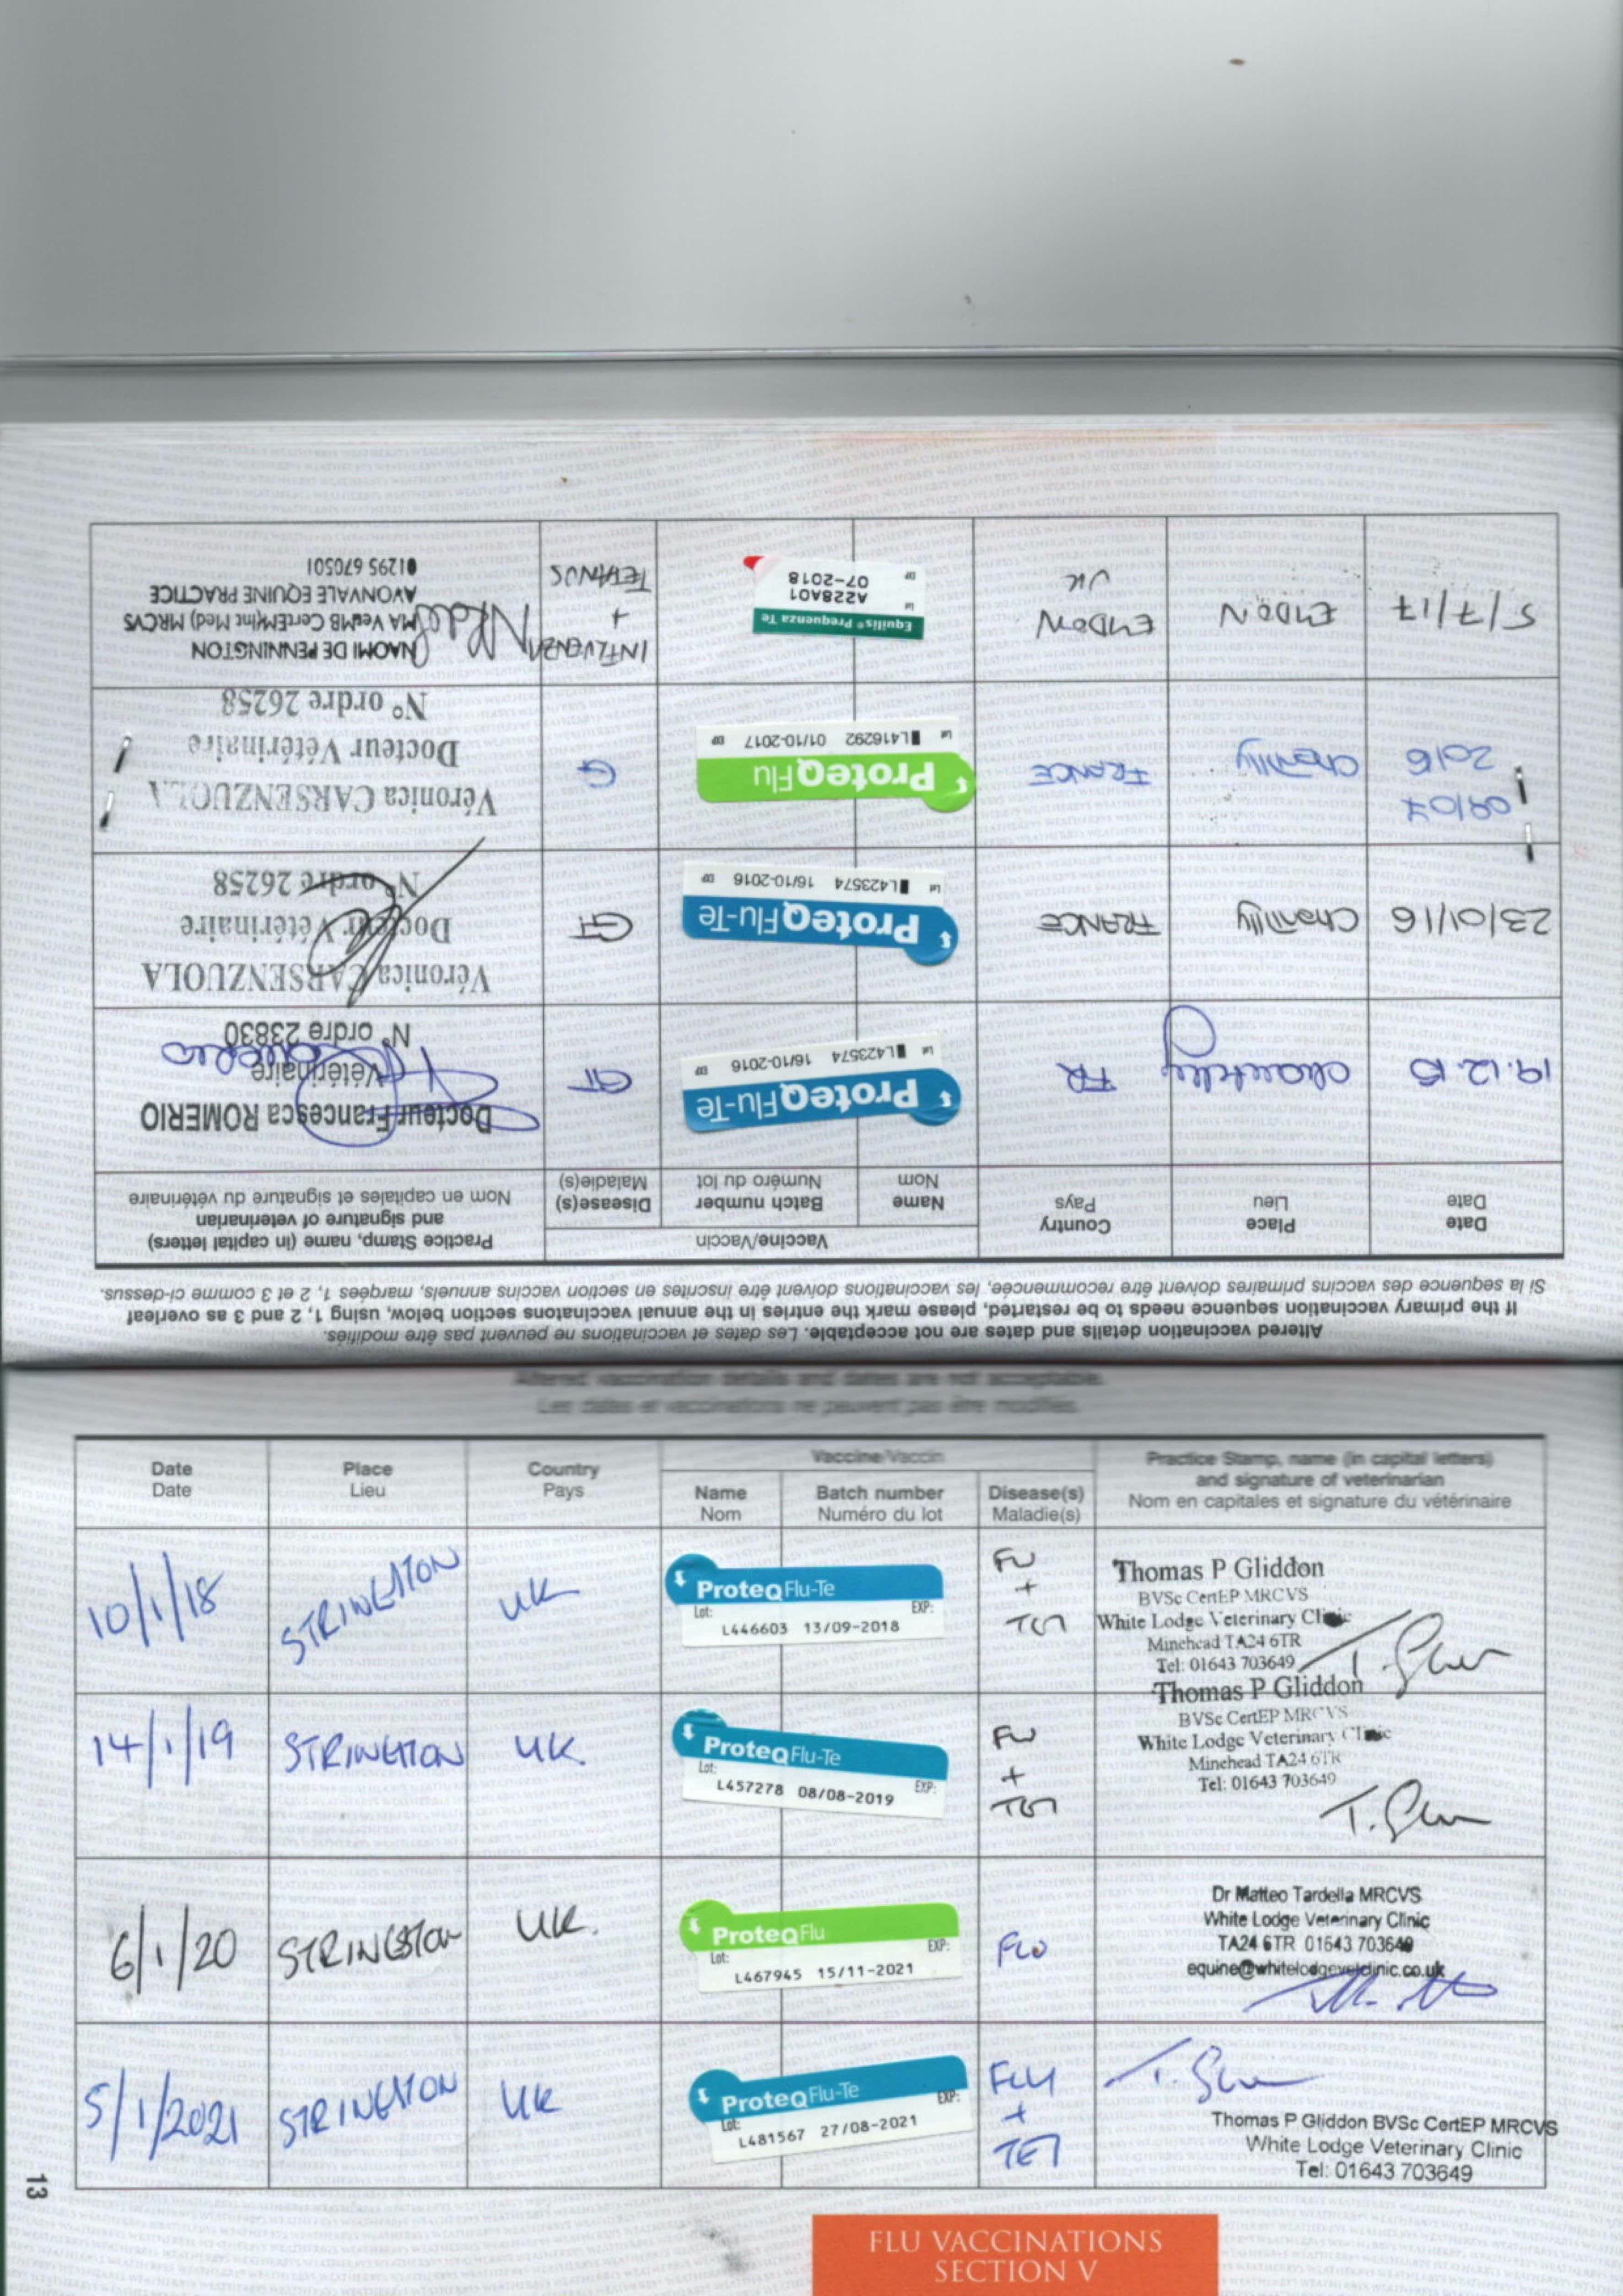 Altered vaccination details and dates are not acceptable. Les dates et vaccinations ne peuvent pas être modifiés.
If the primary vaccination sequence needs to be restarted, please mark the entries in the annual vaccinatons section below, using 1, 2 and 3 as overleaf
Si la séquence des vaccins primaires doivent être recommencée, les vaccinations doivent être inscrites en section vaccins annuels, marquées 1, 2 et 3 comme ci-dessus.
Date
Date
Place
Lieu
Country
Pays
Vaccine/Vaccin
Name
Nom
Batch number
Numéro du lot
Disease(s)
Maladie(s)
Practice Stamp, name (in capital letters)
and signature of veterinarian
Nom en capitales et signature du vétérinaire
19.12.15
Chantilly
FR
ProteqFlu-Te
Lot L423574 16/10-2016 EXP
GT
Docteur Francesca ROMERIO
Vétérinaire
N° ordre 23830
23/01/16
Chantilly
FRANCE
ProteqFlu-Te
Lot L423574 16/10-2016 EXP
GT
Véronica CARSENZUOLA
Docteur Vétérinaire
N° ordre 26258
09/07
2016
Chantilly
FRANCE
ProteqFlu
Lot L416292 01/10-2017 EXP
G
Véronica CARSENZUOLA
Docteur Vétérinaire
N° ordre 26258
5/7/17
EYDON
EYDON
UK
Equilis® Prequenza Te
Lot A228A01
EXP 07-2018
INFLUENZA
+
TETANUS
NAOMI DE PENNINGTON
MA VetMB CertEM(Int Med) MRCVS
AVONVALE EQUINE PRACTICE
01295 670501
Altered vaccination details and dates are not acceptable.
Les dates et vaccinations ne peuvent pas être modifiés.
Date
Date
Place
Lieu
Country
Pays
Vaccine/Vaccin
Name
Nom
Batch number
Numéro du lot
Disease(s)
Maladie(s)
Practice Stamp, name (in capital letters)
and signature of veterinarian
Nom en capitales et signature du vétérinaire
10/1/18
STRINGSTON
UK
ProteqFlu-Te
Lot: EXP:
L446603 13/09-2018
FLU
+
TET
Thomas P Gliddon
BVSc CertEP MRCVS
White Lodge Veterinary Clinic
Minehead TA24 6TR
Tel: 01643 703649
14/1/19
STRINGSTON
UK.
ProteqFlu-Te
Lot: EXP:
L457278 08/08-2019
FLU
+
TET
Thomas P Gliddon
BVSc CertEP MRCVS
White Lodge Veterinary Clinic
Minehead TA24 6TR
Tel: 01643 703649
6/1/20
STRINGSTON
UK.
ProteqFlu
Lot: EXP:
L467945 15/11-2021
FLU
Dr Matteo Tardella MRCVS
White Lodge Veterinary Clinic
TA24 6TR 01643 703649
equine@whitelodgevetclinic.co.uk
5/1/2021
STRINGSTON
UK
ProteqFlu-Te
Lot: EXP:
L481567 27/08-2021
FLU
+
TET
Thomas P Gliddon BVSc CertEP MRCVS
White Lodge Veterinary Clinic
Tel: 01643 703649
13
FLU VACCINATIONS
SECTION V